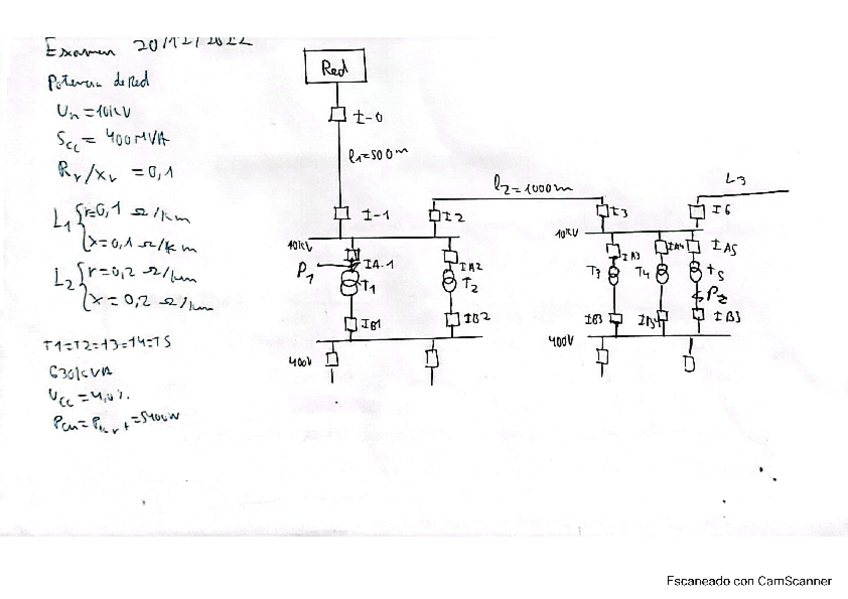 Examen 20/12/2022
Potencia de Red
Un = 10kV
Scc = 400MVA
Rr/Xr = 0,1
L1 { r=0,1 Ω/km
x=0,1 Ω/km
L2 { r=0,2 Ω/km
x=0,2 Ω/km
T1=T2=T3=T4=T5
630kVA
Ucc = 4,0%
Red
I-0
l1=500m
I-1
I2
l2=1000m
I3
L3
I6
10kV
P1
IA-1
T1
IA2
T2
IB1
IB2
400V
10kV
IA3
IA4
IA5
T3
T4
t5
P2
IB3
IB4
IB3
400V
Escaneado con CamScanner